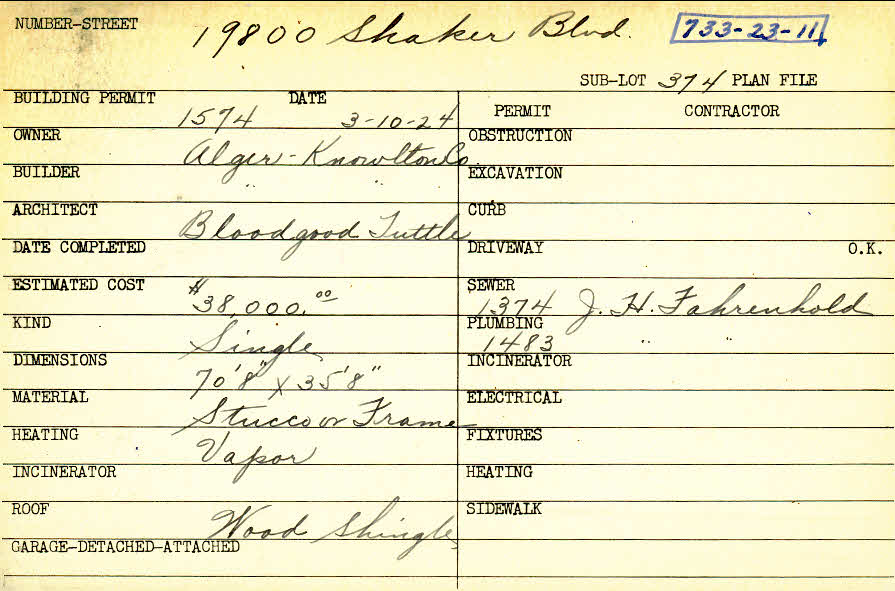 NUMBER-STREET 19800 Shaker Blvd. 733-23-11
SUB-LOT 374 PLAN FILE
BUILDING PERMIT 1574 DATE 3-10-24
PERMIT CONTRACTOR
OWNER Alger-Knowlton Co.
OBSTRUCTION
BUILDER " "
EXCAVATION
ARCHITECT Bloodgood Tuttle
CURB
DATE COMPLETED
DRIVEWAY O.K.
ESTIMATED COST $38,000.00
SEWER 1374 J. H. Fahrenhold
KIND Single
PLUMBING 1483 " "
DIMENSIONS 70'8" x 35'8"
INCINERATOR
MATERIAL Stucco or Frame
ELECTRICAL
HEATING Vapor
FIXTURES
INCINERATOR
HEATING
ROOF Wood Shingle
SIDEWALK
GARAGE-DETACHED-ATTACHED